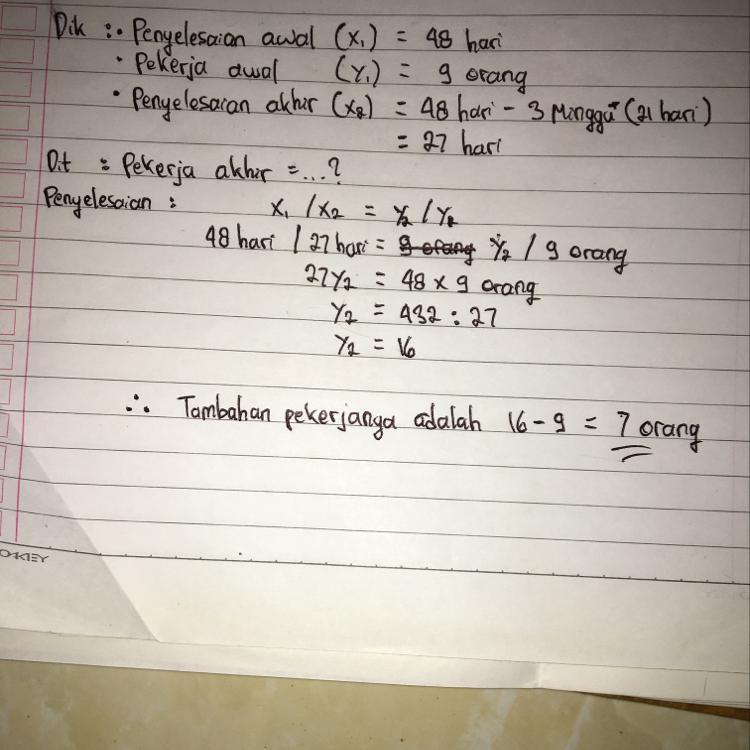 Dik :• Penyelesaian awal (x₁) = 48 hari
• Pekerja awal (y₁) = 9 orang
• Penyelesaian akhir (x₂) = 48 hari - 3 Minggu (21 hari)
= 27 hari
Dit : Pekerja akhir = ...?
Penyelesaian : x₁ / x₂ = y₂ / y₂
48 hari / 27 hari = 9 orang y₂ / 9 orang
27y₂ = 48 x 9 orang
y₂ = 432 : 27
y₂ = 16
∴ Tambahan pekerjanga adalah 16 - 9 = 7 orang